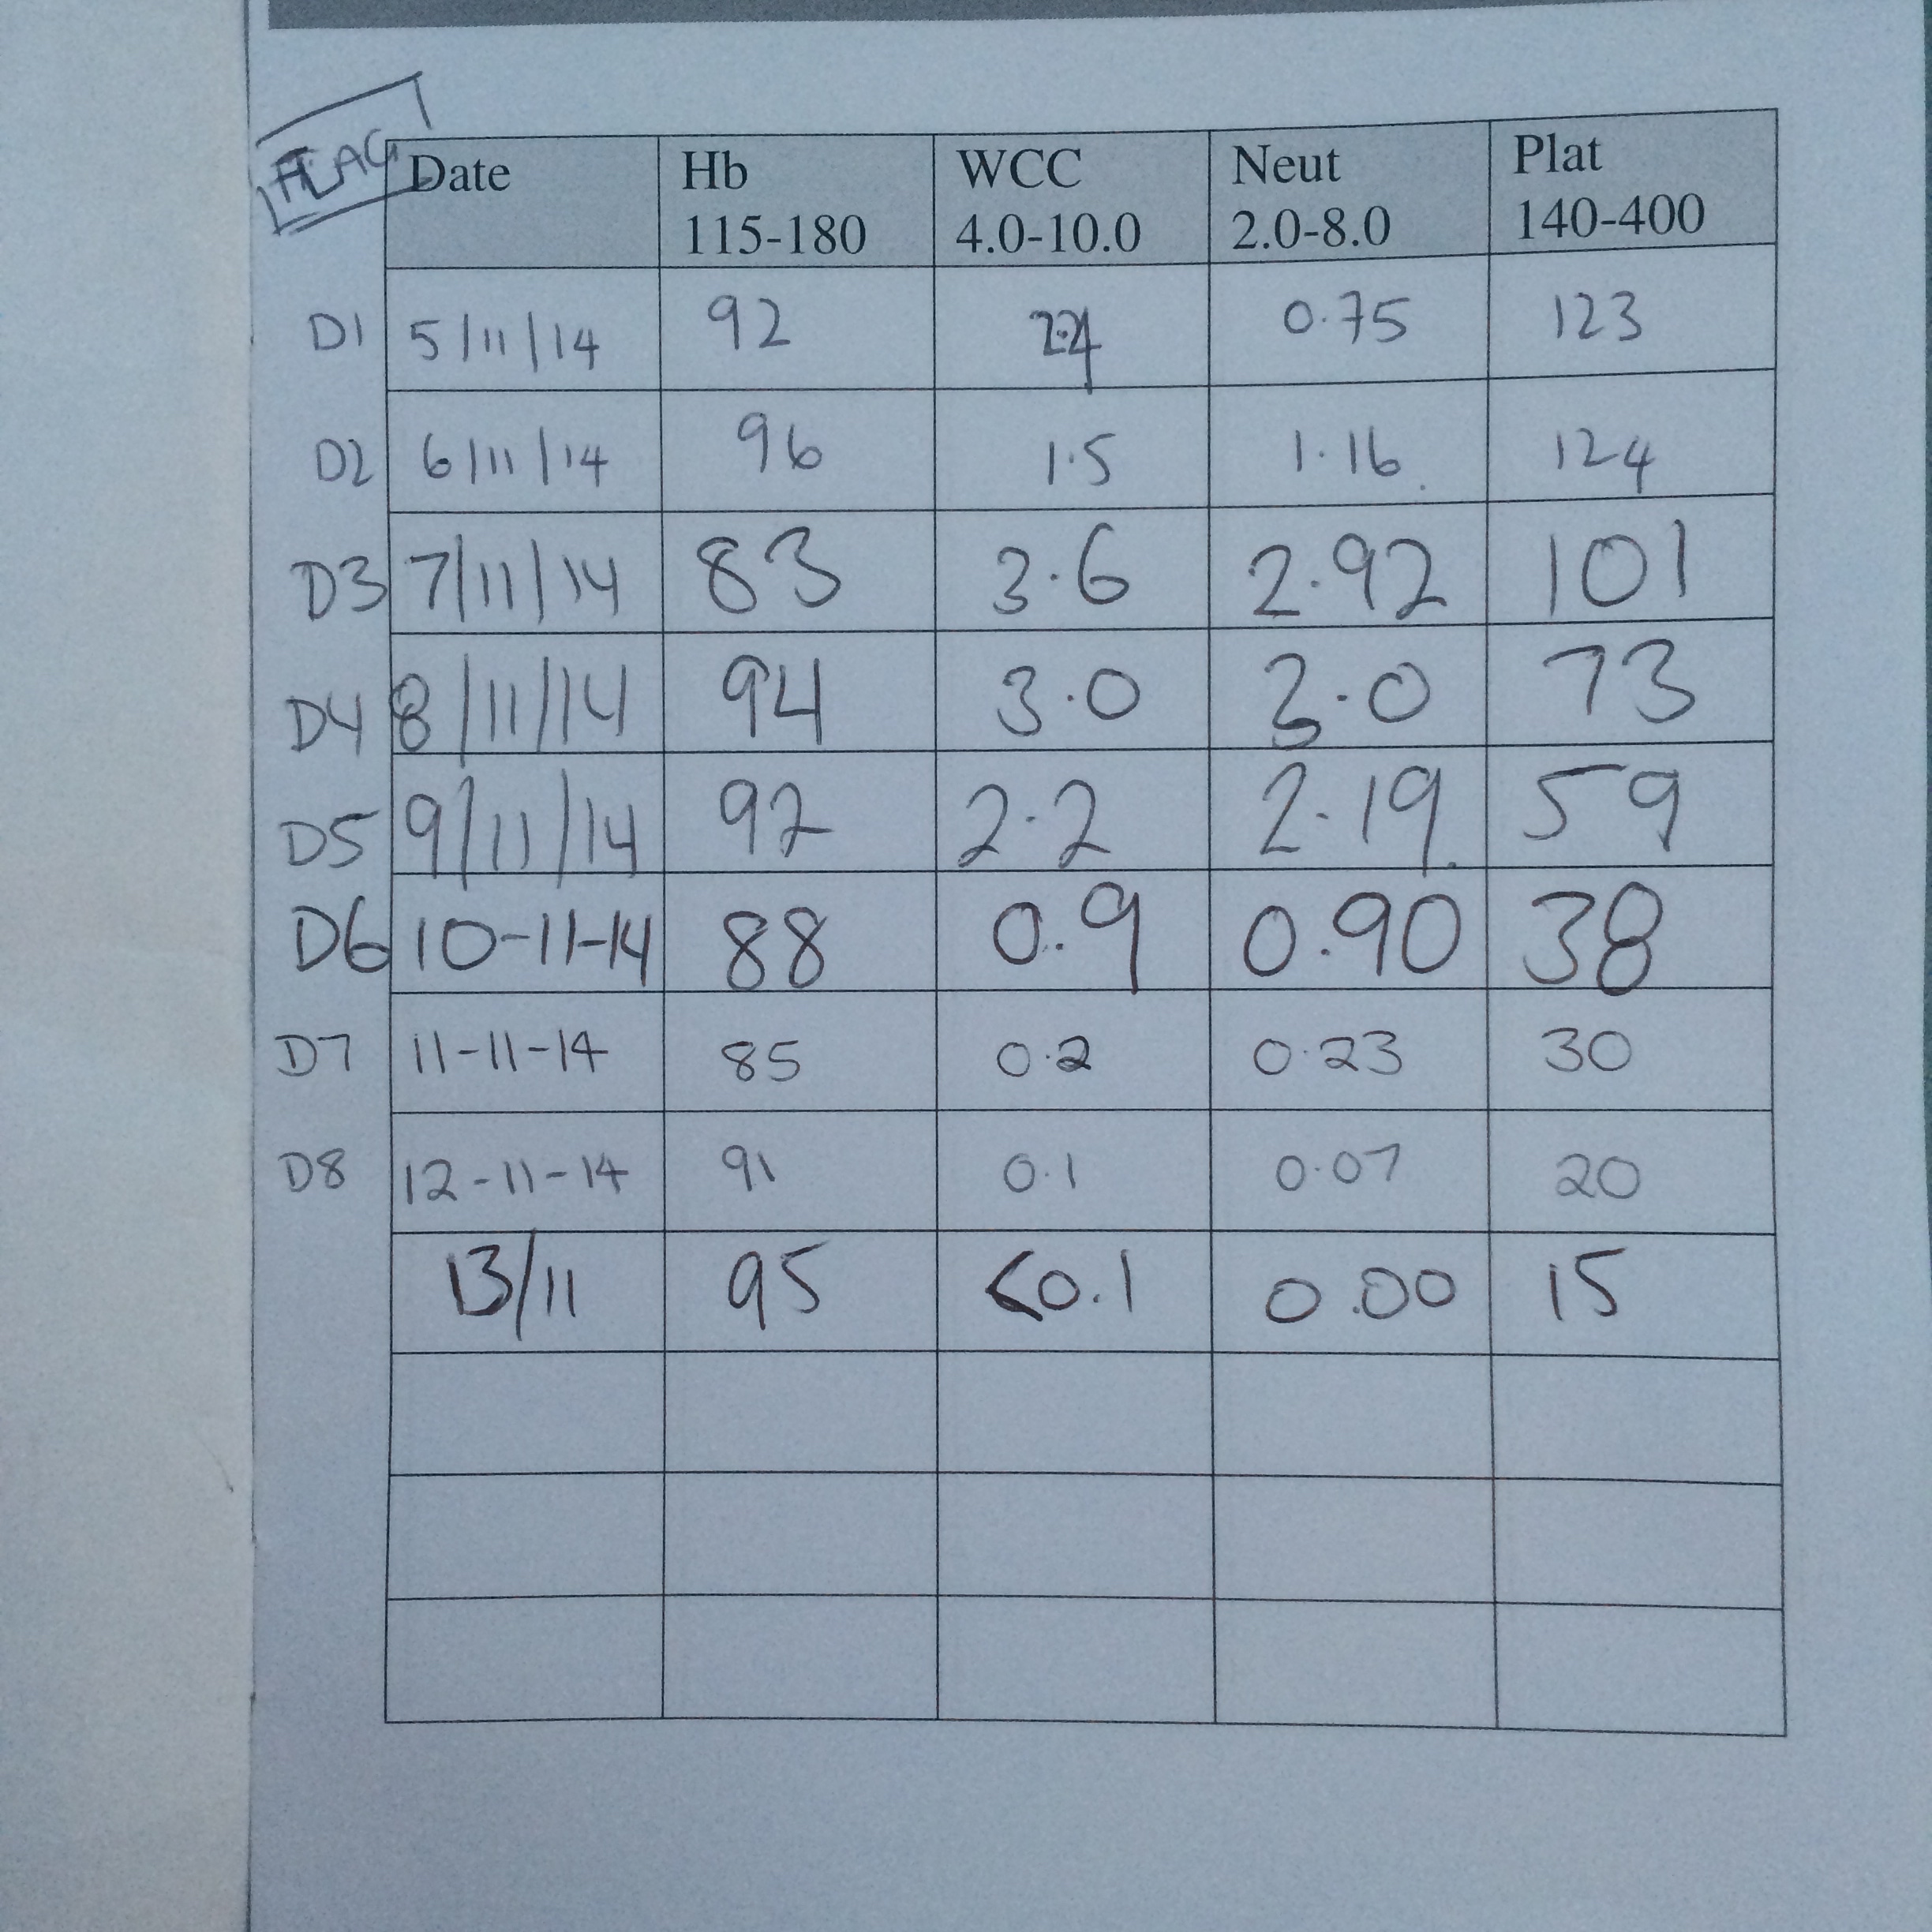 FLAG
Date Hb WCC Neut Plat
115-180 4.0-10.0 2.0-8.0 140-400
D1 5/11/14 92 2.4 0.75 123
D2 6/11/14 96 1.5 1.16 124
D3 7/11/14 83 3.6 2.92 101
D4 8/11/14 94 3.0 3.0 73
D5 9/11/14 92 2.2 2.19 59
D6 10-11-14 88 0.9 0.90 38
D7 11-11-14 85 0.2 0.23 30
D8 12-11-14 91 0.1 0.07 20
13/11 95 <0.1 0.00 15